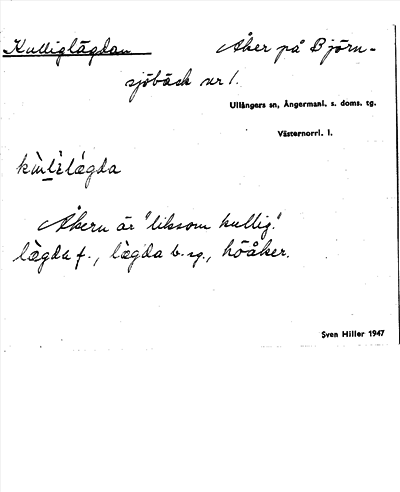 Kulliglägdan Åker på Björn-
sjöbäck nr 1.
Ullångers sn, Ångermanl. s. doms. tg.
Västernorrl. l.
Åkern är "liksom kullig".
lägda f., lägda b. sg., höåker.
Sven Hiller 1947